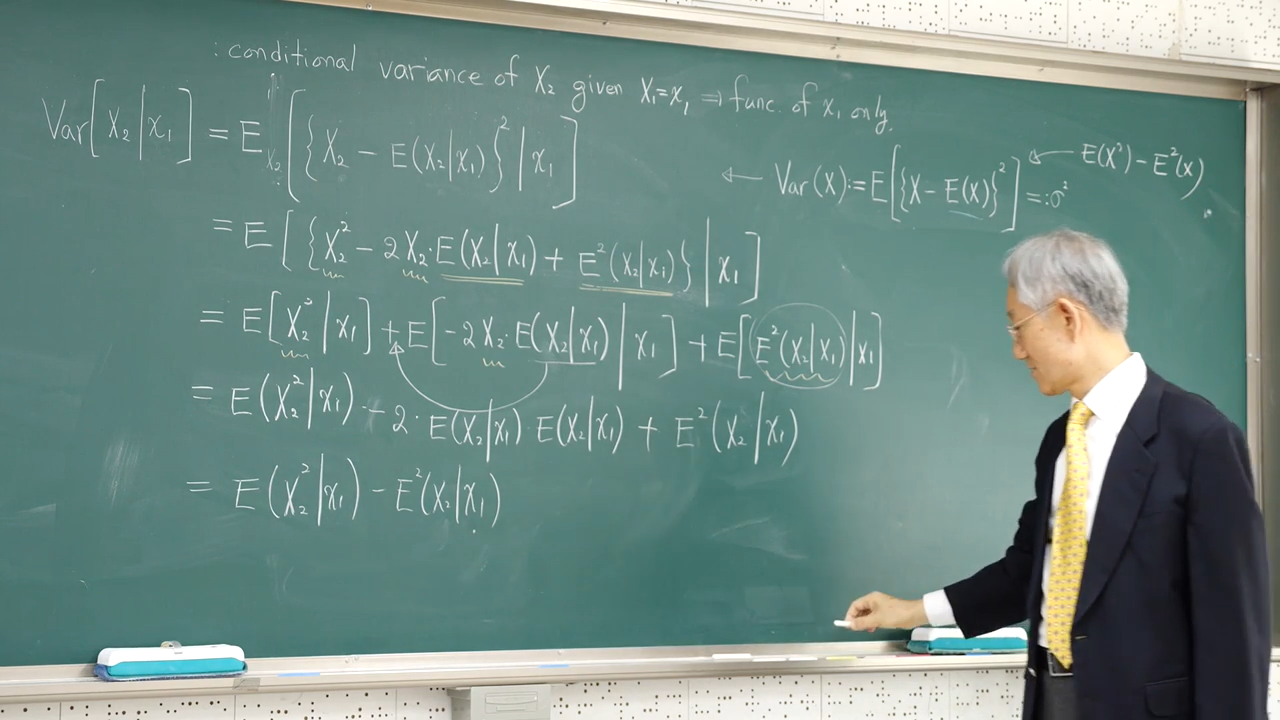 : conditional variance of X₂ given X₁=x₁ ⇒ func. of x₁ only.
Var[X₂|x₁] = E_X₂[{X₂ − E(X₂|x₁)}²|x₁]
← Var(X):=E[{X−E(X)}²]=:σ²
← E(X²)−E²(X)
= E[{X₂² − 2X₂·E(X₂|x₁) + E²(X₂|x₁)}|x₁]
= E[X₂²|x₁] + E[−2X₂·E(X₂|x₁)|x₁] + E[E²(X₂|x₁)|x₁]
= E(X₂²|x₁) − 2·E(X₂|x₁)·E(X₂|x₁) + E²(X₂|x₁)
= E(X₂²|x₁) − E²(X₂|x₁)